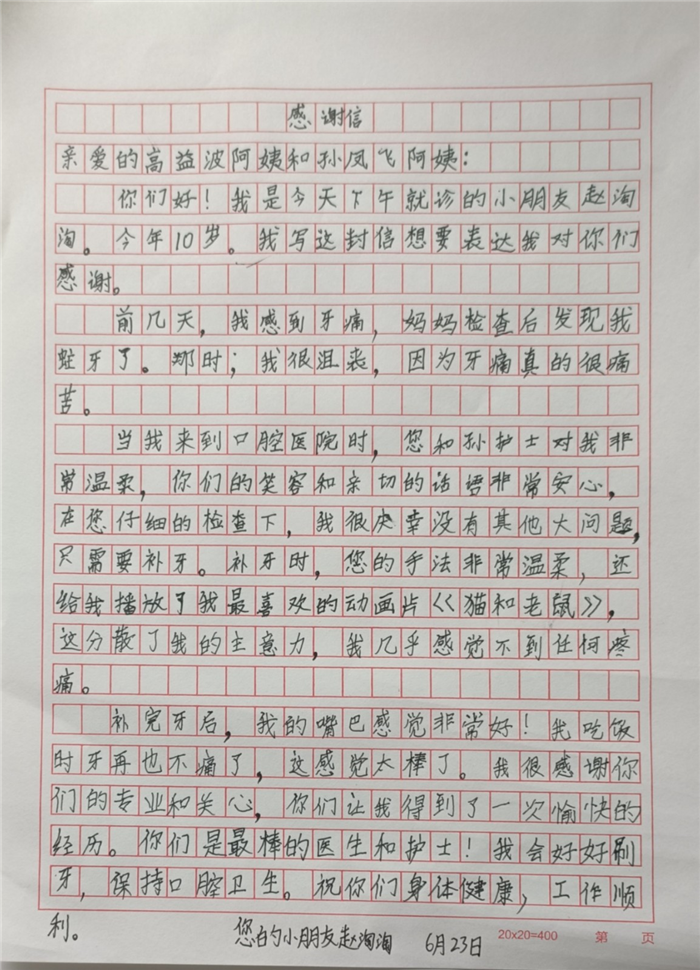 感谢信
亲爱的高益波阿姨和孙凤飞阿姨：
你们好！我是今天下午就诊的小朋友赵洵
洵。今年10岁。我写这封信想要表达我对你们
感谢。
前几天，我感到牙痛，妈妈检查后发现我
蛀牙了。那时；我很沮丧，因为牙痛真的很痛
苦。
当我来到口腔医院时，您和孙护士对我非
常温柔，你们的笑容和亲切的话语非常安心，
在您仔细的检查下，我很庆幸没有其他大问题，
只需要补牙。补牙时，您的手法非常温柔，还
给我播放了我最喜欢的动画片《猫和老鼠》，
这分散了我的主意力，我几乎感觉不到任何疼
痛。
补完牙后，我的嘴巴感觉非常好！我吃饭
时牙再也不痛了，这感觉太棒了。我很感谢你
们的专业和关心，你们让我得到了一次愉快的
经历。你们是最棒的医生和护士！我会好好刷
牙，保持口腔卫生。祝你们身体健康，工作顺
利。
您的小朋友赵洵洵 6月23日
20x20=400 第 页